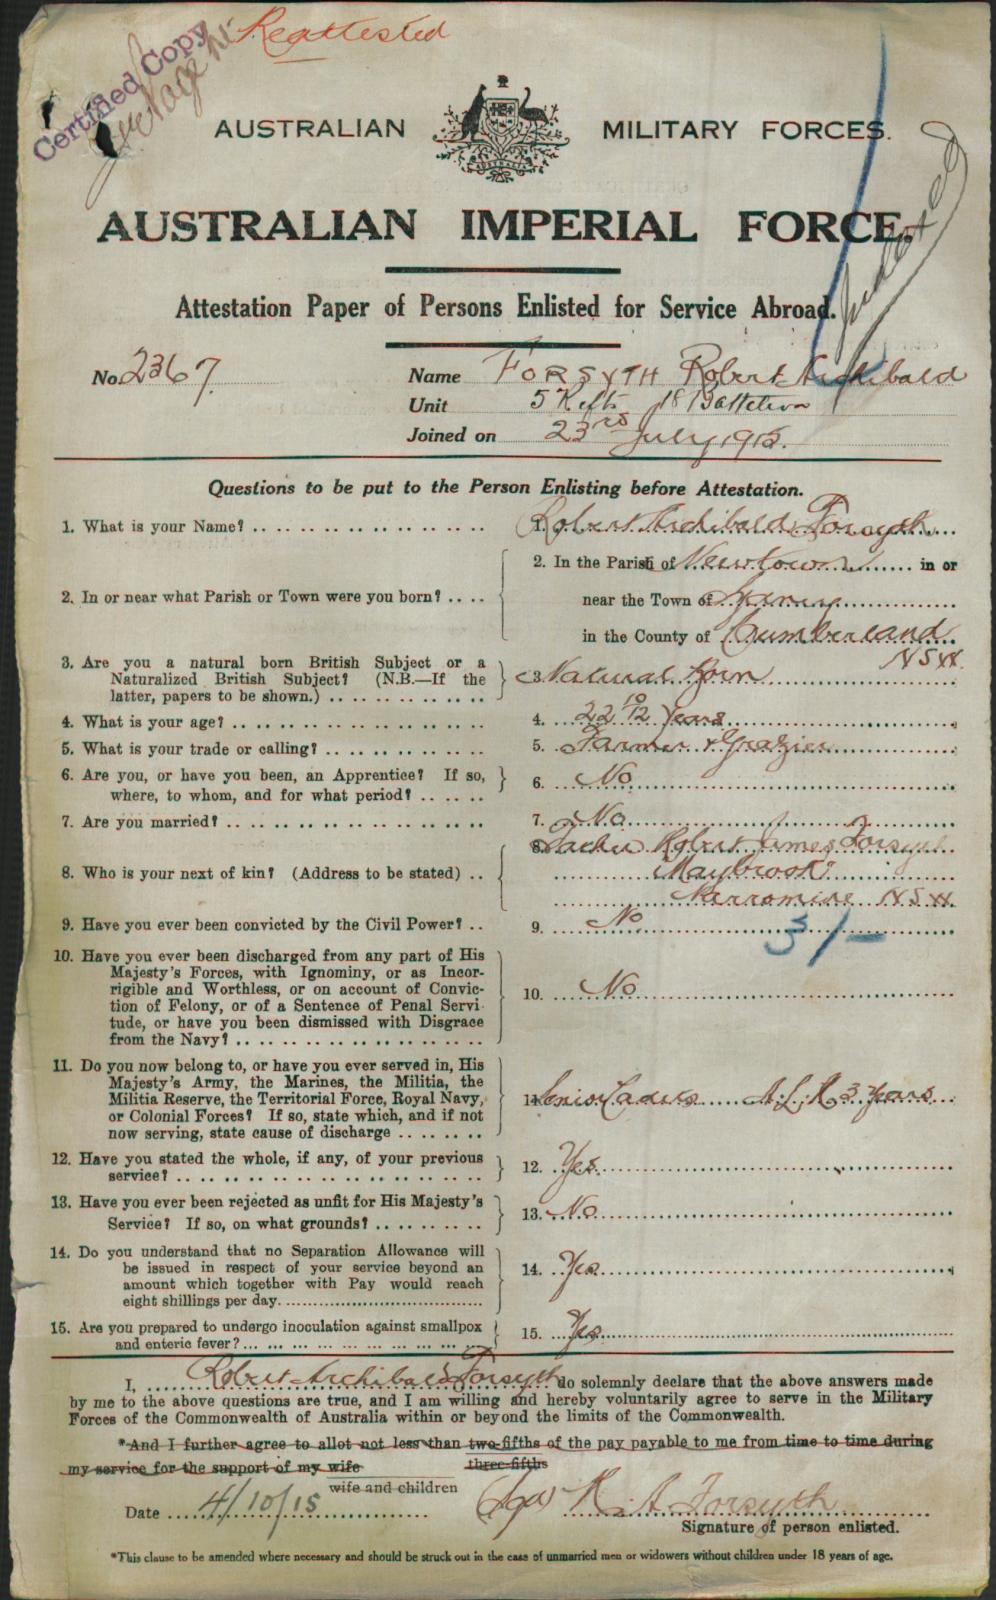 Reattested
Certified Copy
AUSTRALIAN MILITARY FORCES.
AUSTRALIA
AUSTRALIAN IMPERIAL FORCE.
Indexed
Attestation Paper of Persons Enlisted for Service Abroad.
No. 2367 Name FORSYTH Robert Archibald
Unit 5 Refts 18 Battalion
Joined on 23rd July 1915.
Questions to be put to the Person Enlisting before Attestation.
1. What is your Name? 1. Robert Archibald Forsyth
2. In or near what Parish or Town were you born? 2. In the Parish of Newtown in or
near the Town of Sydney
in the County of Cumberland
NSW
3. Are you a natural born British Subject or a
Naturalized British Subject? (N.B.—If the
latter, papers to be shown.) 3. Natural Born
4. What is your age? 4. 22 10/12 Years
5. What is your trade or calling? 5. Farmer & Grazier
6. Are you, or have you been, an Apprentice? If so,
where, to whom, and for what period? 6. No
7. Are you married? 7. No
8. Who is your next of kin? (Address to be stated) 8. Father Robert James Forsyth
Maybrook
Narromine NSW.
9. Have you ever been convicted by the Civil Power? 9. No
3/-
10. Have you ever been discharged from any part of His
Majesty's Forces, with Ignominy, or as Incor-
rigible and Worthless, or on account of Convic-
tion of Felony, or of a Sentence of Penal Servi-
tude, or have you been dismissed with Disgrace
from the Navy? 10. No
11. Do you now belong to, or have you ever served in, His
Majesty's Army, the Marines, the Militia, the
Militia Reserve, the Territorial Force, Royal Navy,
or Colonial Forces? If so, state which, and if not
now serving, state cause of discharge 11. Senior Cadets 3 Years
12. Have you stated the whole, if any, of your previous
service? 12. Yes
13. Have you ever been rejected as unfit for His Majesty's
Service? If so, on what grounds? 13. No
14. Do you understand that no Separation Allowance will
be issued in respect of your service beyond an
amount which together with Pay would reach
eight shillings per day. 14. Yes
15. Are you prepared to undergo inoculation against smallpox
and enteric fever? 15. Yes
I, Robert Archibald Forsyth do solemnly declare that the above answers made
by me to the above questions are true, and I am willing and hereby voluntarily agree to serve in the Military
Forces of the Commonwealth of Australia within or beyond the limits of the Commonwealth.
*And I further agree to allot not less than two-fifths of the pay payable to me from time to time during
three-fifths
my service for the support of my wife
wife and children
Date 4/10/15 (Sgd) R. A. Forsyth
Signature of person enlisted.
*This clause to be amended where necessary and should be struck out in the case of unmarried men or widowers without children under 18 years of age.